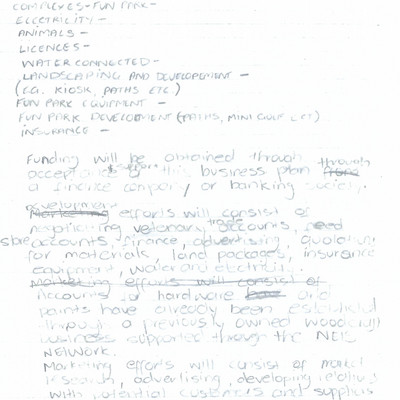 COMPLEXES - FUN PARK -
ELECTRICITY -
ANIMALS -
LICENCES -
WATER CONNECTED -
LANDSCAPING AND DEVELOPEMENT -
(EG. KIOSK, PATHS ETC.)
FUN PARK EQUIPMENT -
FUN PARK DEVELOPMENT (PATHS, MINI GOLF ETC)
INSURANCE -
Funding will be obtained through through
acceptance & support of this business plan from
a finance company or banking society.
Development
Marketing efforts will consist of
negotiating vetenary, trade accounts, feed
store accounts, finance, advertising, quotations
for materials, land packages, insurance
equipment, water and electricity.
Marketing efforts will consist of
Accounts for hardware and
paints have already been established
through a previously owned woodcraft
business supported through the NEIS
NETWORK.
Marketing efforts will consist of market
research, advertising, developing relations
with potential customers and suppliers